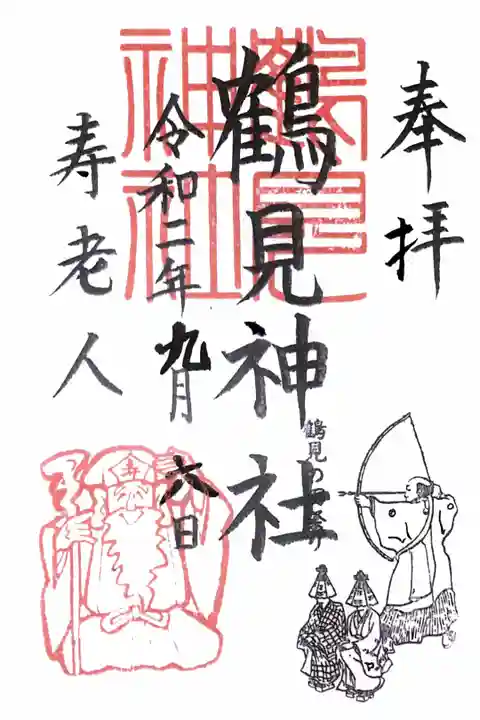 奉拝
鶴見神社
鶴見神社
鶴見の田祭り
令和二年九月六日
寿老人
寿